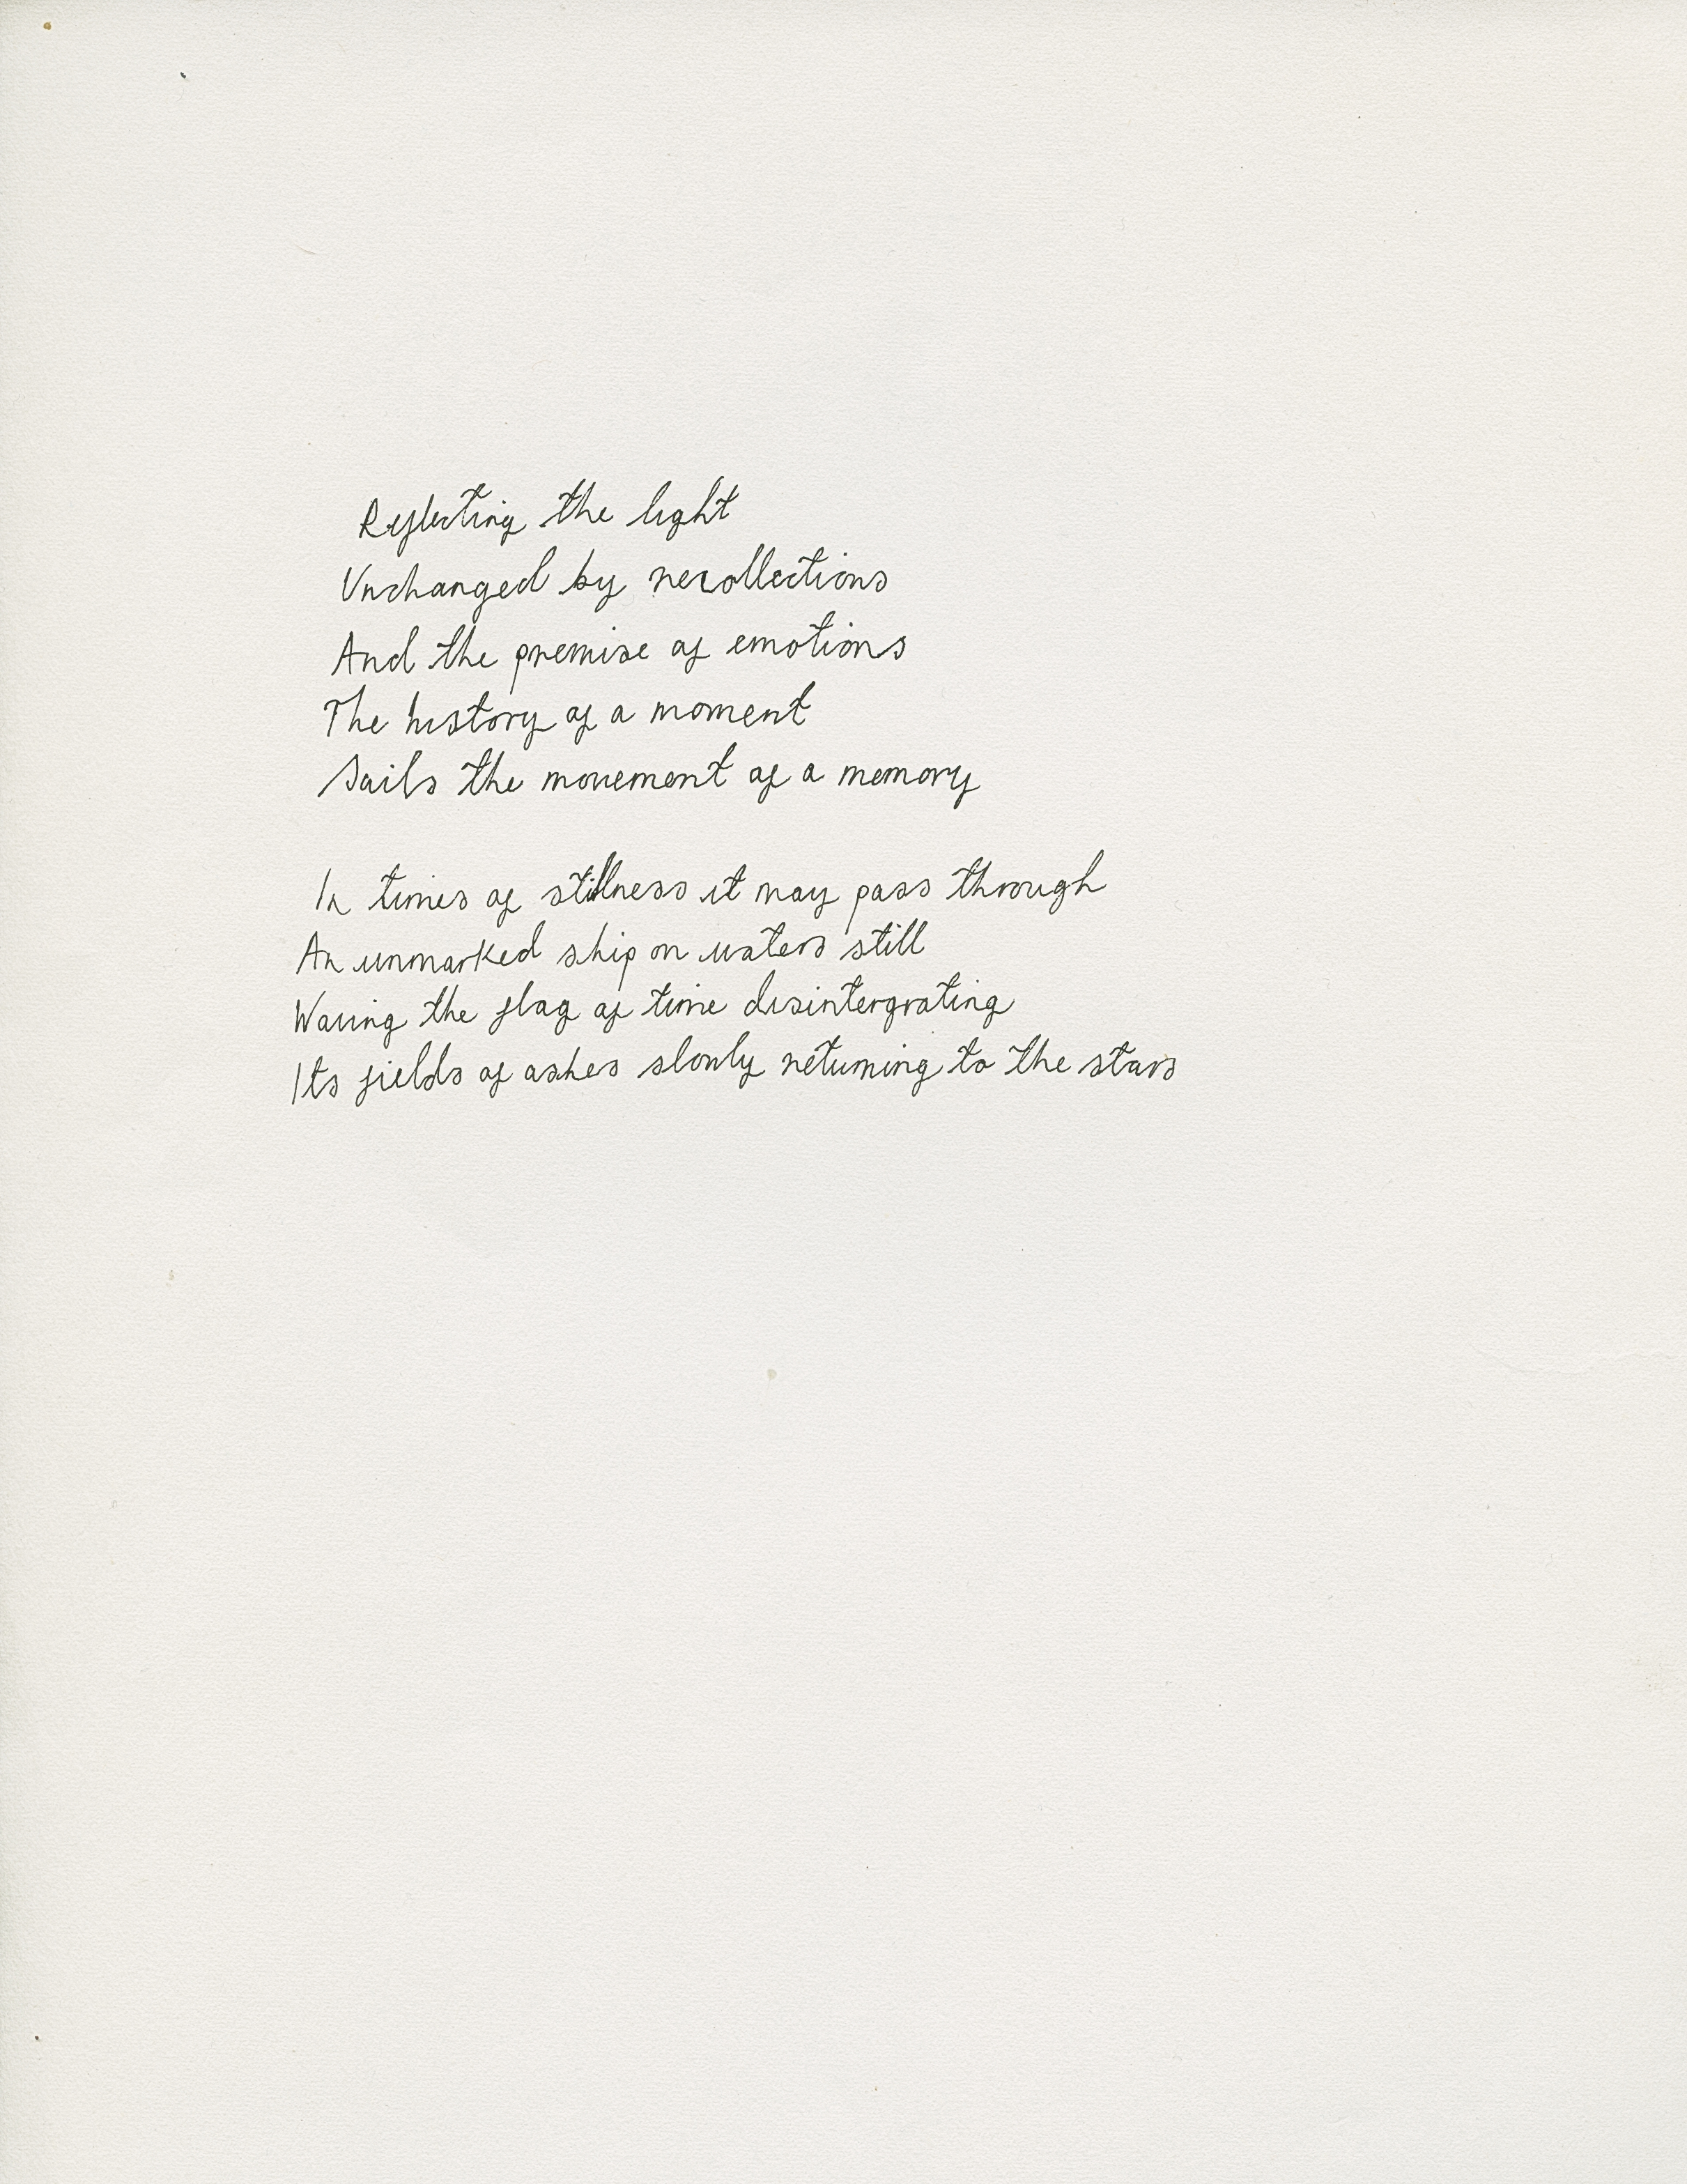 Reflecting the light
Unchanged by recollections
And the premise of emotions
The history of a moment
Sails the movement of a memory
In times of stillness it may pass through
An unmarked ship on waters still
Waving the flag of time disintergrating
Its fields of ashes slowly returning to the stars